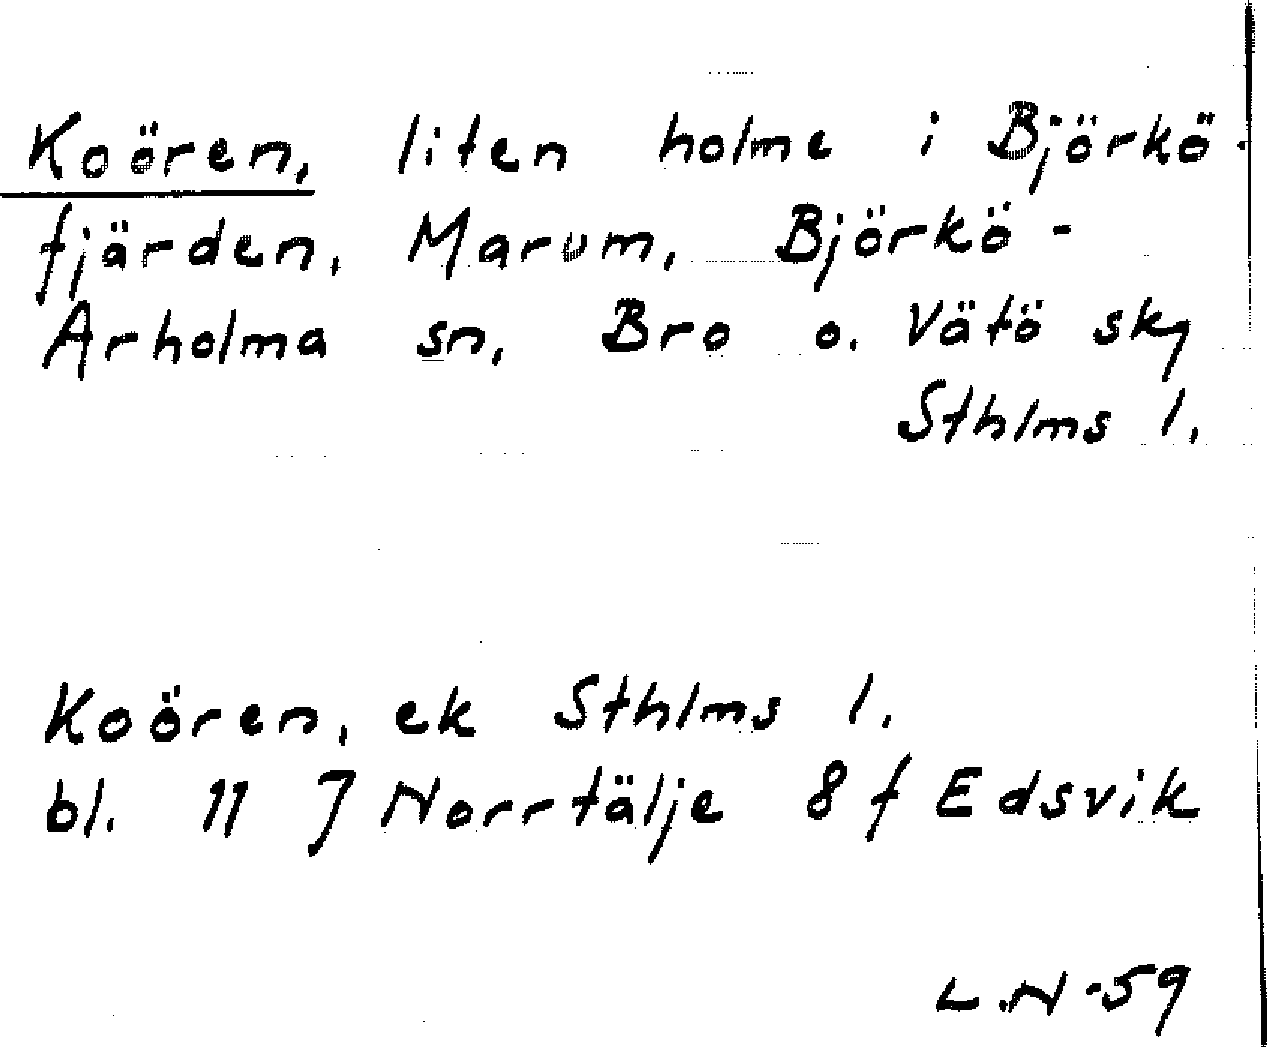 Koören, liten holme i Björkö-
fjärden, Marum, Björkö-
Arholma sn, Bro o. Vätö skg
Sthlms l.
Koören, ek Sthlms l.
bl. 11 J Norrtälje 8 f Edsvik
L.N -59